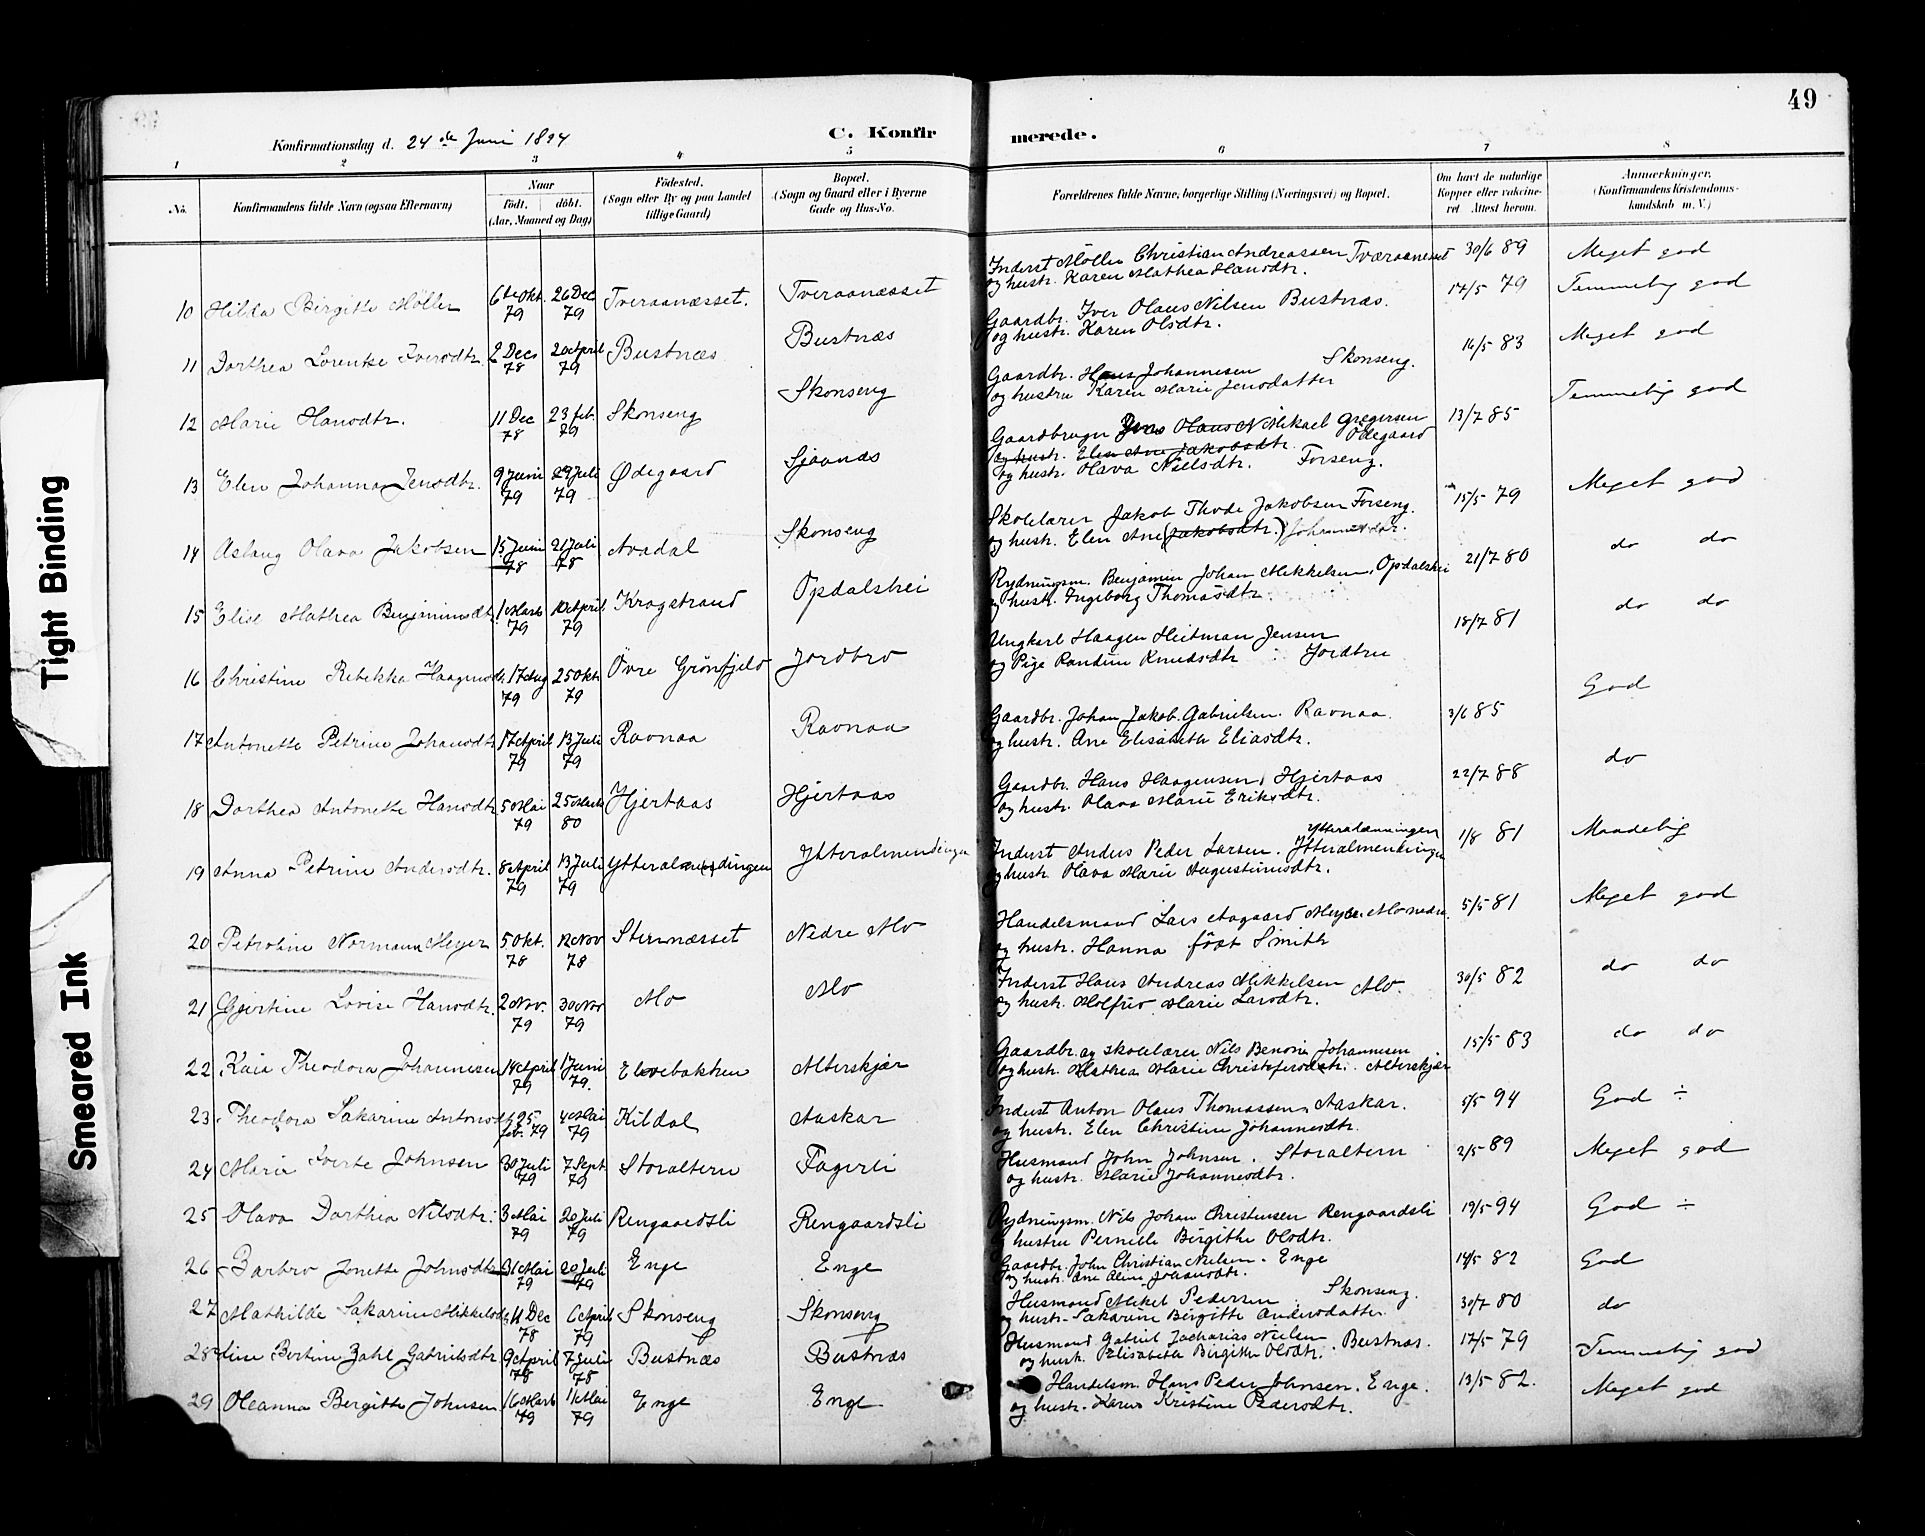 49
C. Konfirmerede.
Konfirmationsdag d. 24de Juni 1894
1 2 3 4 5 6 7 8
No.
Konfirmandens fulde Navn (ogsaa Efternavn)
Naar
født. døbt.
(Aar, Maaned og Dag)
Fødested.
(Sogn eller By og paa Landet
tillige Gaard)
Bopæl.
(Sogn og Gaard eller i Byerne
Gade og Hus-No.
Forældrenes fulde Navne, borgerlige Stilling (Næringsvei) og Bopæl.
Om havt de naturlige
Kopper eller vaccine-
ret Attest herom.
Anmerkninger.
(Konfirmandens Kristendoms-
kundskab m. V.)
10 Hilda Birgitte Møller 6te Okt. 79 26 Dec 79 Tveraanæsset. Tveraanæsset Inderst Møller Christian Andreassen Tværaanesset 30/6 89 Meget god
og hustr. Karen Mathea Hansdtr.
11 Dorthea Lorentse Iversdtr. 2 Decs 78 20 April 79 Bustnæs Bustnæs Gaardbr. Iver Olaus Nilsen Bustnæs. 14/5 79 Temmelig god
og hustr. Karen Olsdtr.
12 Marie Hansdtr. 11 Dec 78 23 feb. 79 Skonseng Skonseng Gaardbr. Hans Johannesen Skonseng. 16/5 83 Meget god
og hustru Karen Marie Jensdatter
13 Elen Johanna Jensdtr. 9 Juni 79 29 Juli 79 Ødegaard Sjaanæs Gaardbruger Jens Olaus N Mikael Gregersen Ødegaard 13/7 85 Temmelig god
og hustr. Elen Ane Jakobsdtr.
og hustr. Olava Nielsdtr. Forseng.
14 Aslaug Olava Jakobsen 15 Juni 78 21 Juli 78 Avadal Skonseng Skolelærer Jakob Thode Jakobsen Forseng. 15/5 79 Meget god
og hustr. Elen Ane (Jakobsdtr.) Johannesdtr.
15 Elise Mathea Benjaminsdtr. 1 Marts 79 10 April 79 Kragstrand Opdalshei Rydningsm. Benjamin Johan Mikkelsen, Opdalshei 21/7 80 do do
og hustr. Ingeborg Thomasdtr.
16 Christine Rebekka Haagensdtr. 17 Aug 79 25 Okt. 79 Övre Grönfjeld Jordbro Ungkarl Haagen Heitman Jensen 18/7 81 do do
og Pige Randine Knudsdtr Jordbru
17 Antonette Petrine Johansdtr. 17 April 79 13 Juli 79 Ravnaa Ravnaa Gaardbr. Johan Jakob Gabrielsen. Ravnaa. 3/6 85 God
og hustr. Ane Elisabeth Eliasdtr.
18 Dorthea Antonette Hansdtr. 5 Mai 79 25 Marts 80 Hjertaas Hjertaas Gaardbr. Hans Haagensen, Hjertaas 22/7 88 do
og hustr. Olava Marie Eriksdtr.
19 Anna Petrine Andersdtr. 8 April 79 13 Juli 79 Ytteralmendingen Ytteralmendingen Inderst Anders Peder Larsen. Ytteralmendingen 1/8 81 Maadelig
og hustr. Olava Marie Augustinusdtr.
20 Petroline Normann Meyer 5 Okt. 78 12 Nov 78 Stennæsset Nedre Mo Handelsmand Lars Aagaard Meyer. Mo nedre. 5/5 81 Meget god
og hustr. Hanna født Smith
21 Gjertine Lovise Hansdtr. 2 Nov. 79 30 Nov 79 Mo Mo Inderst Hans Andreas Mikkelsen Mo. 30/5 82 do do
og hustr. Molfrid Marie Larsdtr.
22 Kaia Theodora Johannesen 14 April 79 1 Juni 79. Elvebakken Alterskjær Gaardbr. og skolelærer Nils Benoni Johannesen 15/5 83 do do
og hustr. Mathea Marie Christofersdtr. Alterskjær
23 Theodora Sakarine Antonsdtr. 25 feb. 79 4 Mai 79 Kildal Aaskar Inderst Anton Olaus Thomassen, Aaskar. 5/5 94 God ÷
og hustr. Elen Christine Johannesdtr.
24 Marie Iverte Johnsen 30 Juli 79 7 Sept. 79 Storaltern Fagerli Husmand John Johnsen. Storaltern 2/5 89 Meget god
og hustr. Marie Johannesdtr.
25 Olava Dorthea Nilsdtr. 3 Mai 79 20 Juli 79 Rengaardsli Rengaardsli Rydningsm. Nils Johan Christensen Rengaardsli 19/5 94 God ÷
og hustru Pernille Birgithe Olsdtr.
26 Barbro Jonette Johnsdtr. 31 Mai 79 20 Juli 79 Enge Enge Gaardbr. John Christian Nielsen. Enge 14/5 82 God
og hustr. Ane Aline Johansdtr.
27 Mathilde Sakarine Mikkelsdtr. 11 Dec 78 6 April 79 Skonseng Skonseng Husmand Mikel Pedersen Skonseng. 30/7 80 do
og hustr. Sakarine Birgitte Andersdatter.
28 Line Bertine Zahl Gabrielsdtr. 9 April 78 7 Juli 78 Bustnæs Bustnæs Husmand Gabriel Zacharias Nielsen Bustnæs. 17/5 79 Temmelig god
og hustr. Elisabeth Birgitte Olsdtr.
29 Oleanna Bergitte Johnsen 16 Marts 79 11 Mai 79 Enge Enge Handelsm. Hans Peder Johnsen. Enge. 13/5 82. Meget god
og hustr. Karen Kristine Pedersdtr.
Tight Binding
Smeared Ink